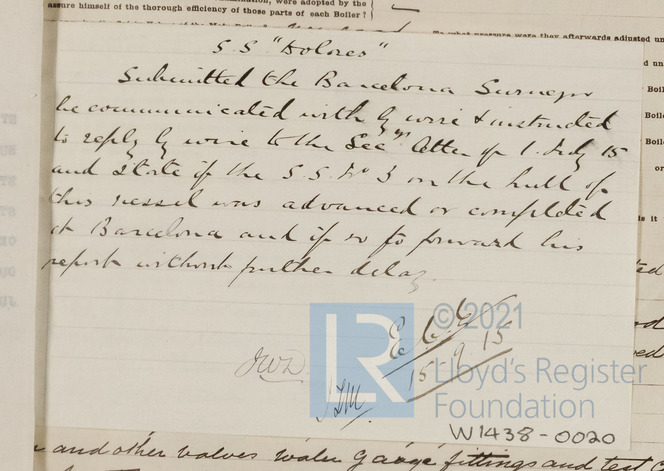 assure himself of the thorough efficiency of those parts of each Boiler?
To what pressure were they afterwards adjusted un
S.S. "Dolores"
Submitted the Barcelona Surveyor
be communicated with by wire & instructed
to reply by wire to the Secy's letter of 1 July 15
and state if the S.S. No 3 on the hull of
this vessel was advanced or completed
at Barcelona and if so to forward his
report without further delay
JWD
15 9 15
© 2021
LR
Lloyd's Register
Foundation
W1438-0020
and other valves water gauge fittings and test